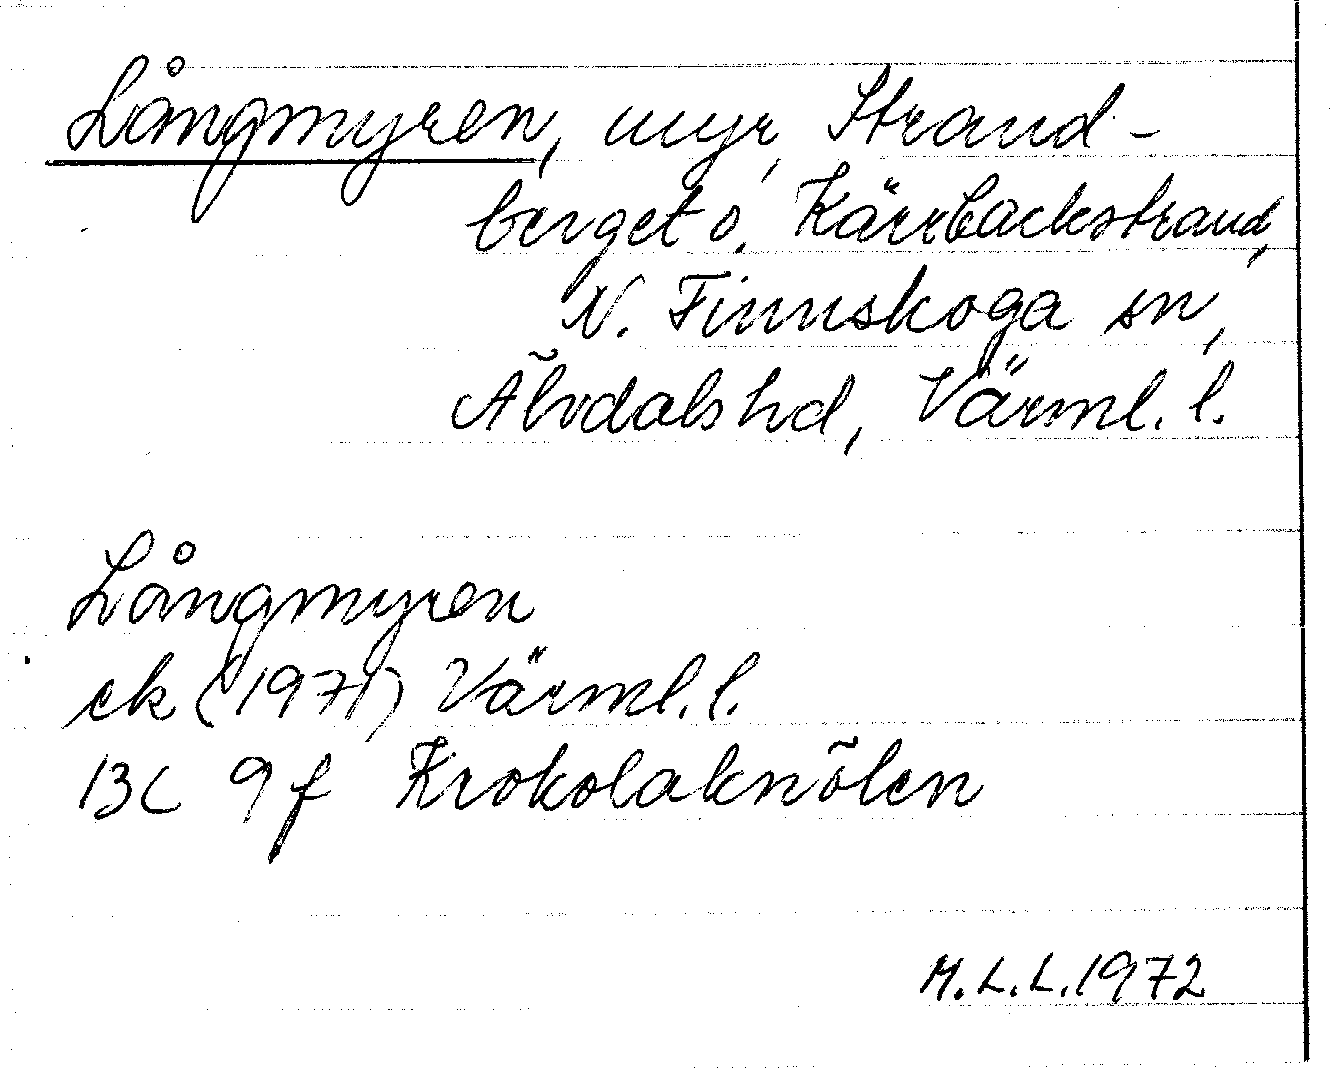 Långmyren, myr, Strand-
berget o. Kärrbackstrand,
N. Finnskoga sn,
Älvdals hd, Värml. l.
Långmyren
ek (1971) Värml. l.
13C 9f Krokolaknölen
M.L.L. 1972